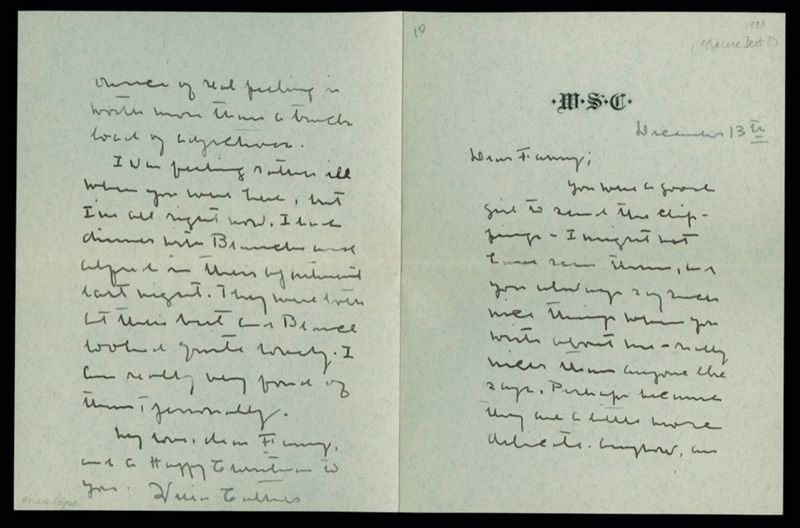 10
1933
·W·S·C·
December 13th
Dear Fanny;
You were a good
girl to send the clip-
pings - I might not
have seen them, and
you always say such
nice things when you
write about me - really
nicer than anyone else
says. Perhaps because
they are a little more
delicate. Anyhow, an
ounce of real feeling is
worth more than a truck
load of adjectives.
I was feeling rather ill
when you were here, but
I'm all right now. I had
dinner with Blanche and
Alfred in their apartment
last night. They were both
at their best and Blanche
looked quite lovely. I
am really very fond of
them, personally.
My love, dear Fanny,
and a Happy Christmas to
you. Willa Cather
envelope